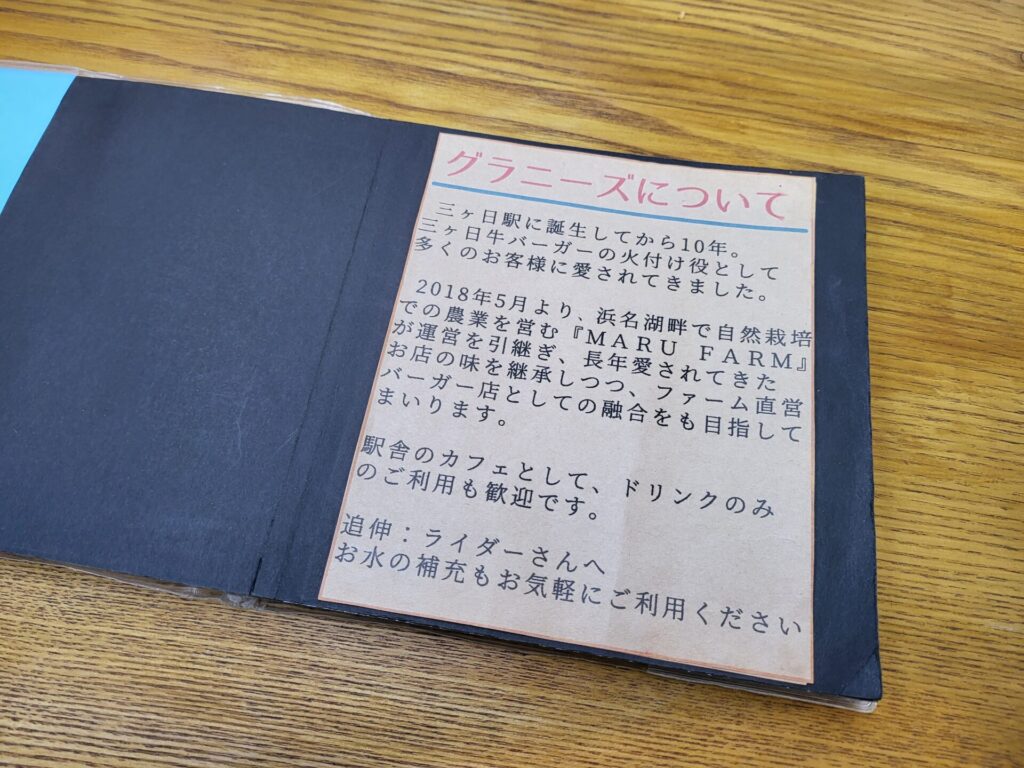 グラニーズについて
三ヶ日駅に誕生してから10年。
三ヶ日牛バーガーの火付け役として
多くのお客様に愛されてきました。
2018年5月より、浜名湖畔で自然栽培
での農業を営む『MARU FARM』
が運営を引継ぎ、長年愛されてきた
お店の味を継承しつつ、ファーム直営
バーガー店としての融合をも目指して
まいります。
駅舎のカフェとして、ドリンクのみ
のご利用も歓迎です。
追伸：ライダーさんへ
お水の補充もお気軽にご利用ください